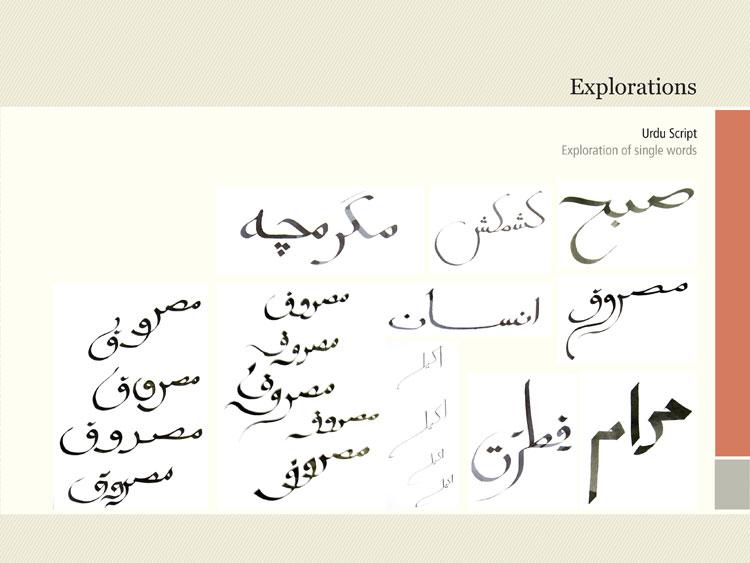 Explorations
Urdu Script
Exploration of single words
صبح
کشمکش
مگرمچه
مصروف
انسان
مصروف
مصروف
مصروف
مصروف
مصروف
مصروف
مصروف
مصروف
مصروف
اکمل
اکمل
اکمل
اکمل
فطرت